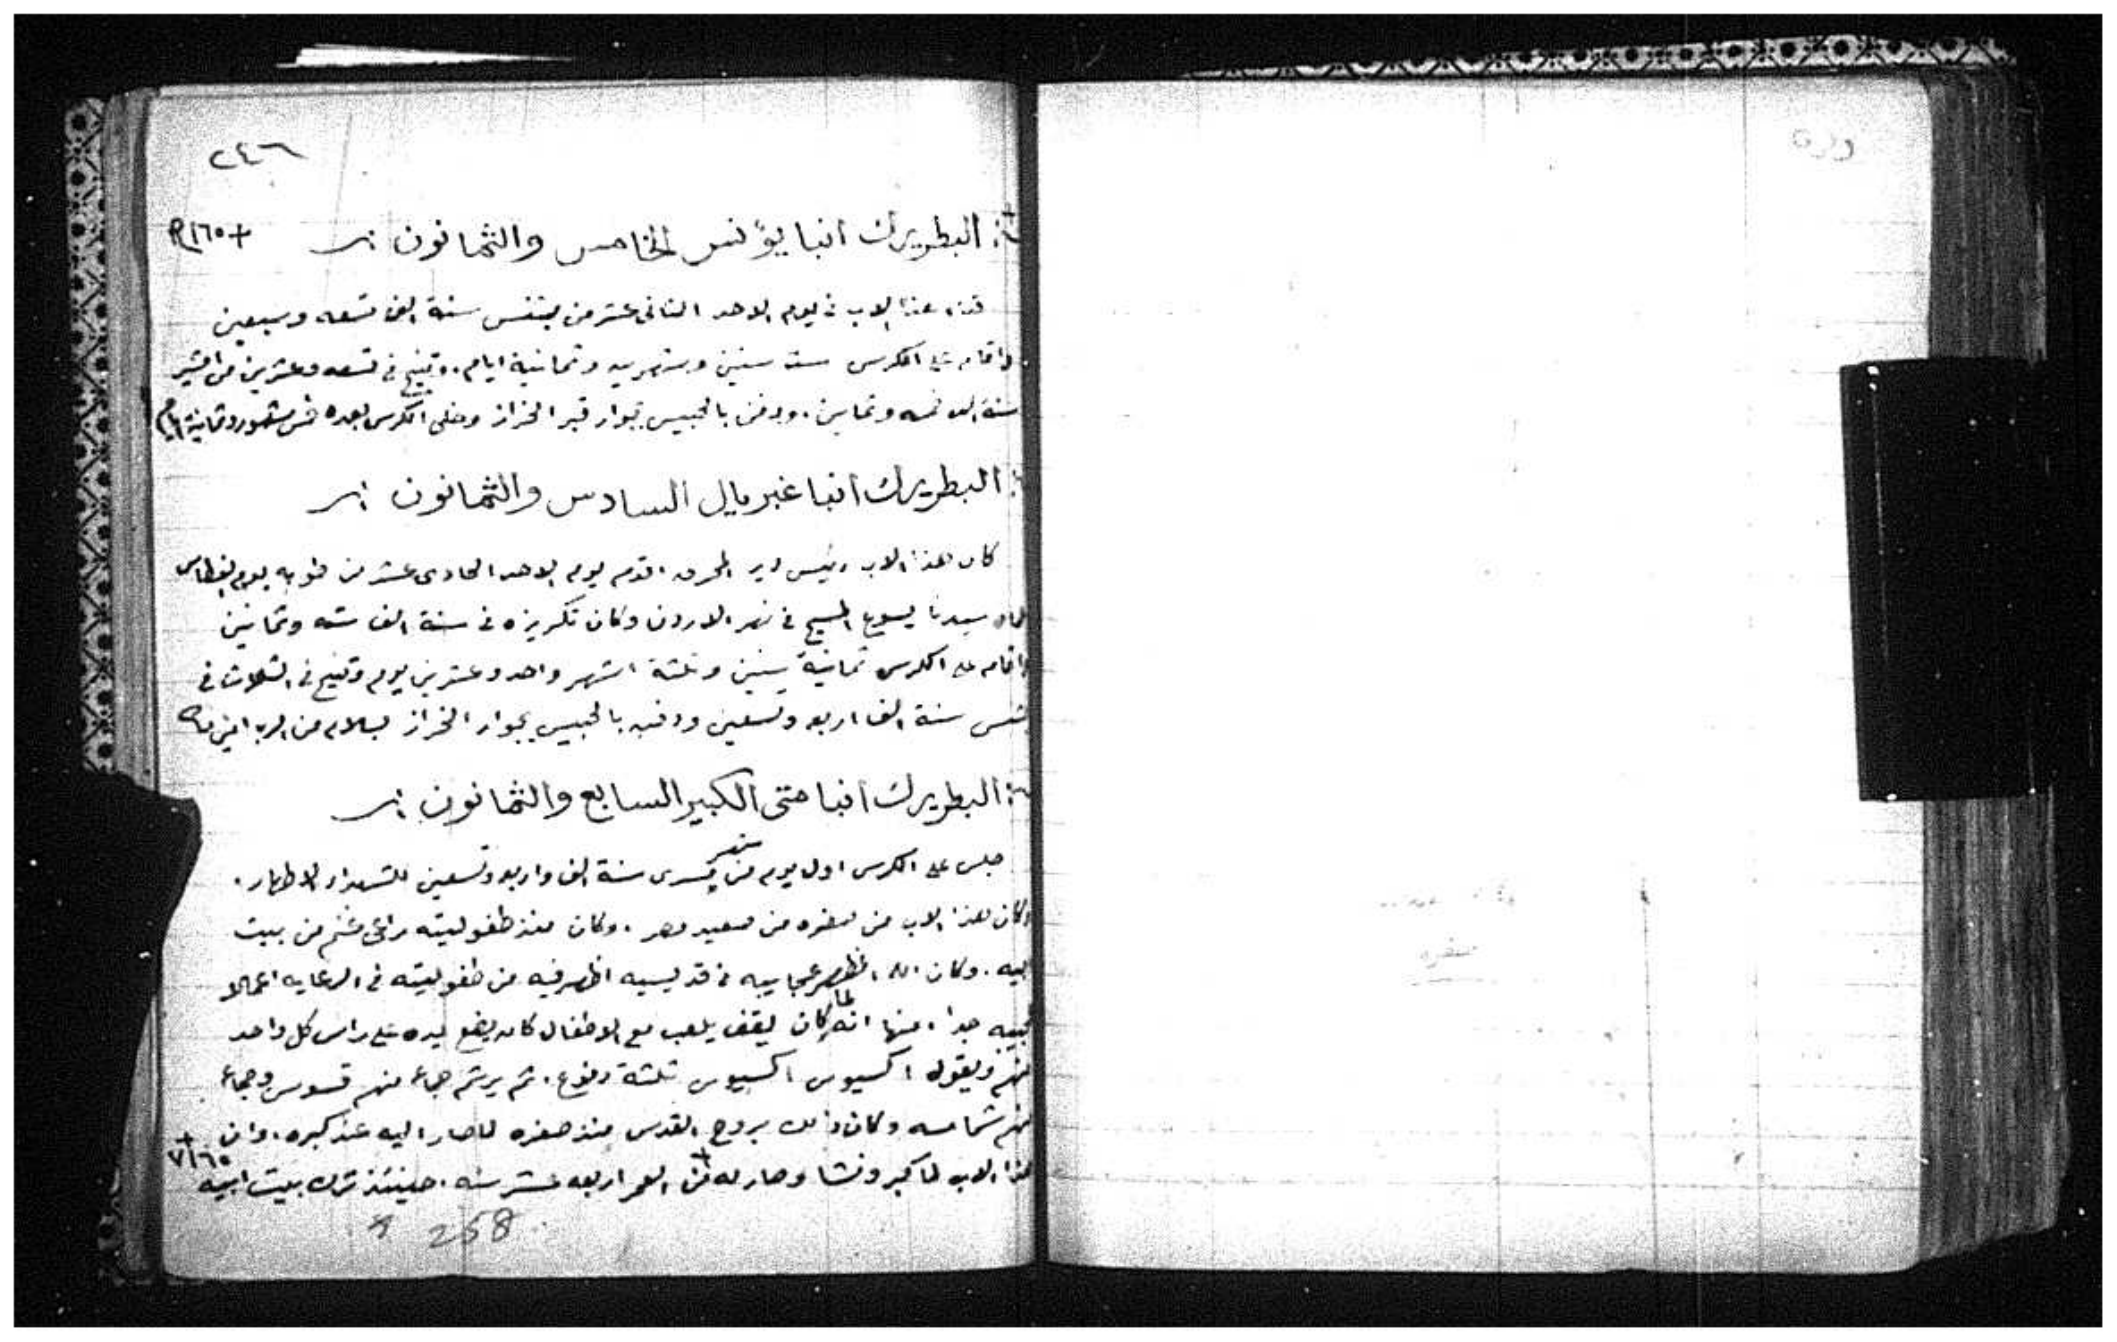 ٢٤٦
البطريرك انبا يؤنس الخامس والثمانون
+ ١٦٥
قدم هذا الاب في يوم الاحد الثاني عشر من بشنس سنة الف تسعه وسبعين
واقام على الكرسي ست سنين وشهرين وثمانية ايام. وتنيح في تسعه وعشرين من امشير
سنة الف خمسه وثمانين. ودفن بالحبيس بجوار قبر الخراز وخلى الكرسي بعده خمس شهور وثمانية
البطريرك انبا غبريال السادس والثمانون
كان هذا الاب رئيس دير المحرق اقدم يوم الاحد الحادى عشر من طوبه يوم الغطاس
سيدنا يسوع المسيح في نهر الاردن وكان تكريزه في سنة الف سته وثمانين
واقام على الكرسي ثمانية سنين وثلثة اشهر واحد وعشرين يوم وتنيح في الثلاث في
بشنس سنة الف اربعه وتسعين ودفنه بالحبيس بجوار الخراز بسلام من الرب امين
البطريرك انبا متى الكبير السابع والثمانون
جلس على الكرسي اول يوم من شهر مسرى سنة الف واربعه وتسعين للشهداء الاطهار.
وكان هذا الاب من من صعيد مصر. وكان منذ طفوليته راعى غنم من بيت
ابيه. وكان الله المظهر عجايبه في قديسيه اظهر فيه من طفوليته في الرعايه اعمالا
عجيبه جدا. منها انه لما كان يقف يلعب مع الاطفال كان يضع يده على راس كل واحد
منهم ويقول اكسيوس اكسيوس ثلثة دفوع. ثم يرشم جماعه منهم قسوس وجماعه
منهم شمامسه وكان ذلك بروح القدس منذ صغره لما صار اليه عند كبره. وان
هذا الاب لما كبر ونشا وصار له من العمر اربعه عشر سنه. حينئذ ترك بيت ابيه
+
١٦٥
258